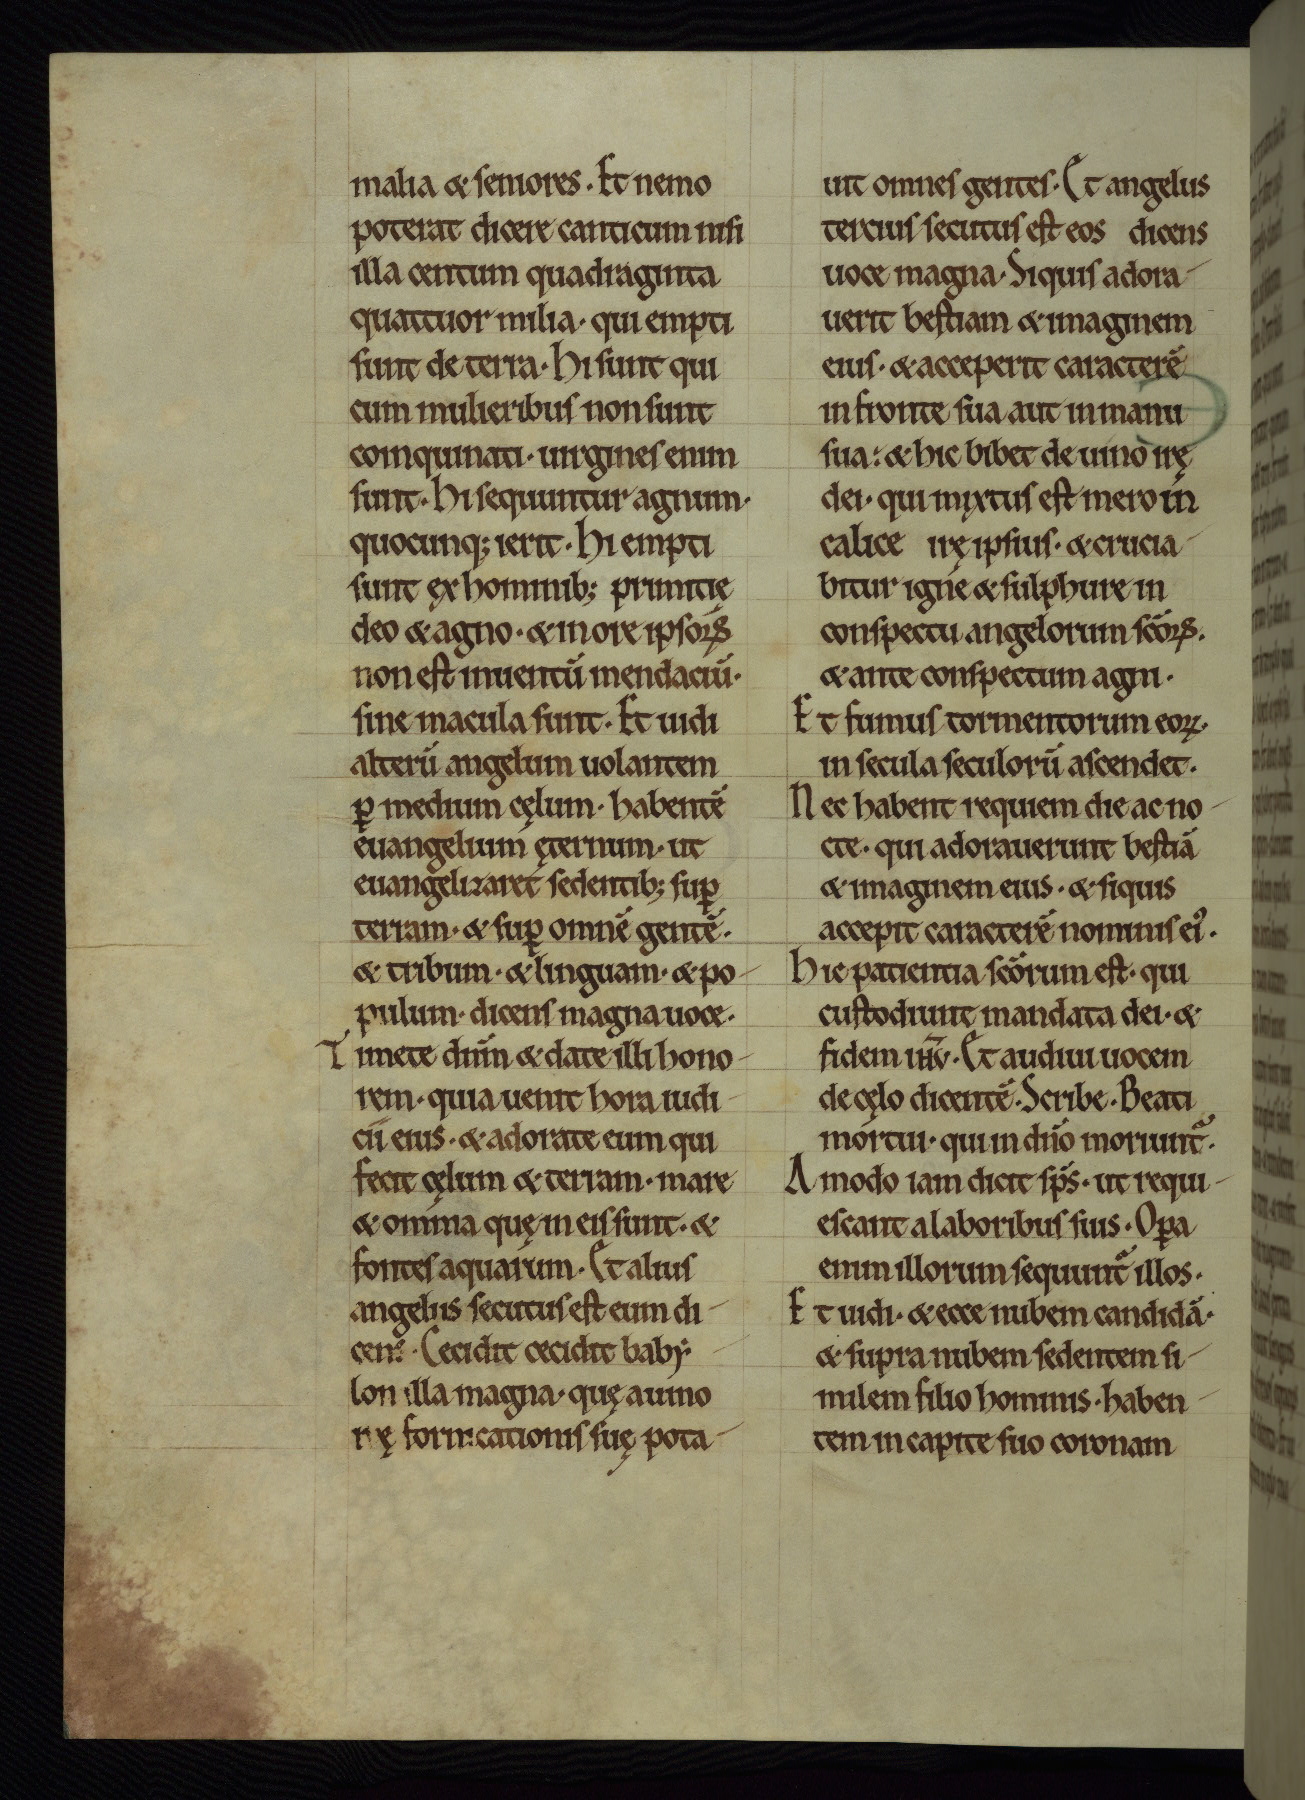 malia & seniores. Et nemo
poterat dicere canticum nisi
illa centum quadraginta
quattuor milia. qui empti
sunt de terra. Hi sunt qui
cum mulieribus non sunt
coinquinati. uirgines enim
sunt. Hi sequuntur agnum.
quocunq; ierit. Hi empti
sunt ex hominib; primitię
deo & agno. & in ore ipsoꝝ
non est inuentū mendaciū.
sine macula sunt. Et uidi
alterū angelum uolantem
ꝑ medium cęlum. habentē
euangelium ęternum. ut
euangelizaret sedentib; suꝑ
terram. & suꝑ omnē gentē.
& tribum. & linguam. & po-
pulum. dicens magna uoce.
Timete dn̄m & date illi hono-
rem. quia uenit hora iudi-
cii eius. & adorate eum qui
fecit cęlum & terram. mare
& omnia quę in eis sunt. &
fontes aquarum. Et alius
angelus secutus est eum di-
cens. Cecidit cecidit baby-
lon illa magna. quę a uino
irę fornicationis suę pota-
uit omnes gentes. Et angelus
tercius secutus est eos dicens
uoce magna. Siquis adora-
uerit bestiam & imaginem
eius. & acceperit caracterē
in fronte sua aut in manu
sua: & hic bibet de uino irę
dei. qui mixtus est mero in
calice irę ipsius. & crucia-
bitur igne & sulphure in
conspectu angelorum scōꝝ.
& ante conspectum agni.
Et fumus tormentorum eoꝝ.
in secula seculorū ascendet.
Nec habent requiem die ac no-
cte. qui adorauerunt bestiā
& imaginem eius. & siquis
accepit caracterē nominis eiꝰ.
Hic patientia scōrum est. qui
custodiunt mandata dei. &
fidem ihū. Et audiui uocem
de cęlo dicentē. Scribe. Beati
mortui. qui in dn̄o moriunt᷑.
Amodo iam dicit sp̄s. ut requi-
escant a laboribus suis. Oꝑa
enim illorum sequunt᷑ illos.
Et uidi. & ecce nubem candidā.
& supra nubem sedentem si-
milem filio hominis. haben-
tem in capite suo coronam